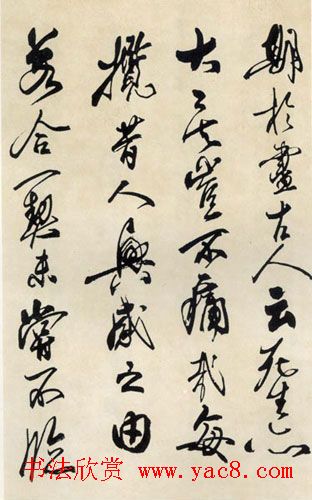 期於盡古人云死生亦
大矣豈不痛哉每
攬昔人興感之由
若合一契未嘗不臨
书法欣赏 www.yac8.com